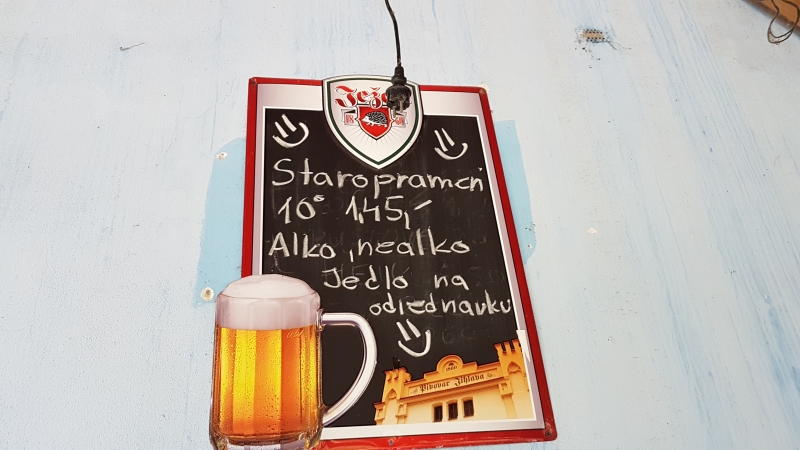 Ježek
Staropramen
10° 1,45,-
Alko, nealko
Jedlo na
odjednavku
Pivovar Jihlava